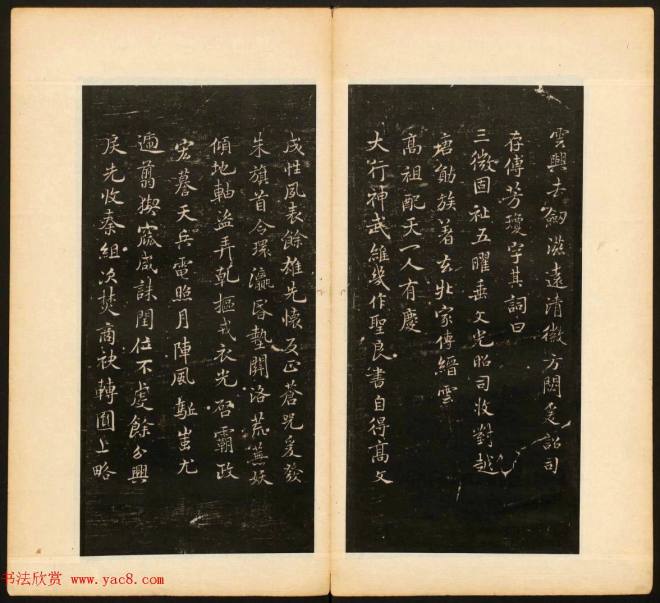 雲興去劒滋遠清徽方閟爰詔司
存傳芳瓊字其詞曰
三微固祉五曜垂文光昭司牧對越
唐勛族著玄牝家傳縉雲
高祖配天一人有慶
大行神武維幾作聖良書自得高文
成性風表餘雄先懷反正蒼兕爰發
朱旗首令環瀛昏墊關洛荒蕪妖
傾地軸盜弄乾樞戎衣光啓霸政
宏謩天兵電照月陣風驅蚩尤
遍翦猰窳咸誅閏位不虔餘分興
戾先收秦組次焚商袂轉圓上略
书法欣赏 www.yac8.com